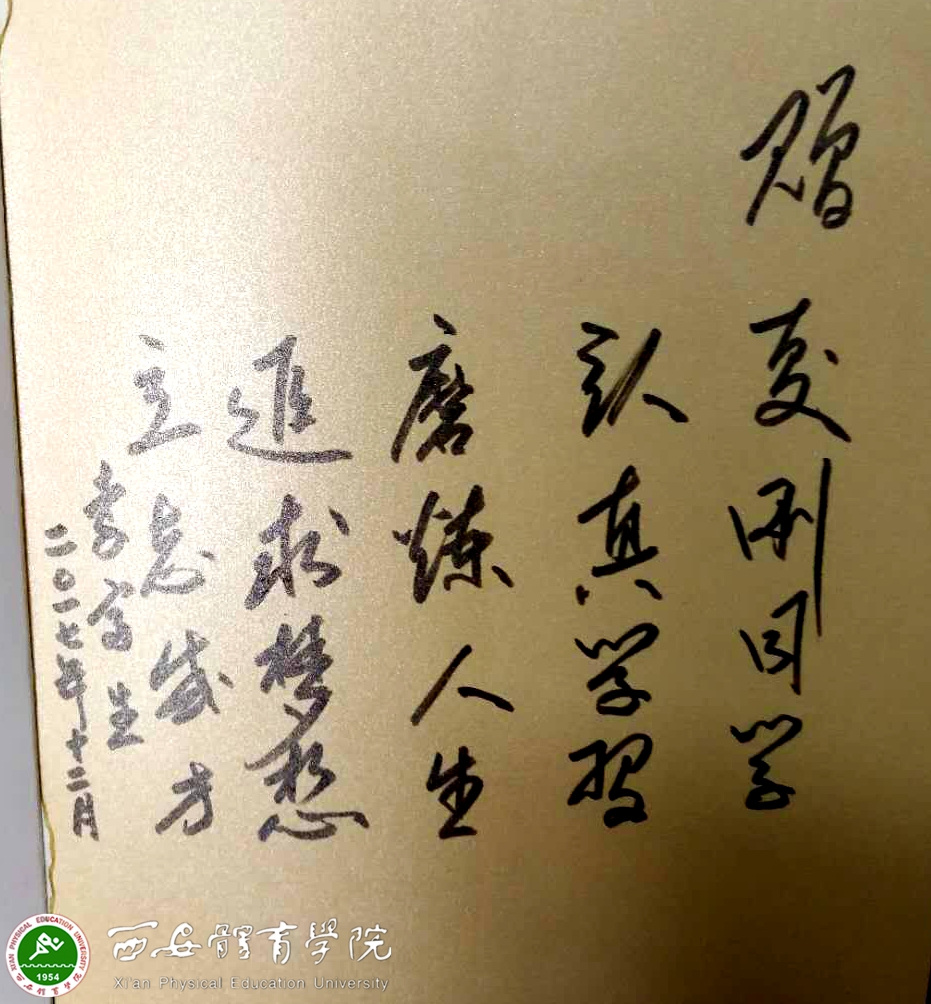 赠 夏刚同学
认真学习
磨炼人生
追求梦想
立志成才
李富生
二〇一七年十二月
XI'AN PHYSICAL EDUCATION UNIVERSITY
1954
西安體育學院
西安體育學院
Xi'an Physical Education University